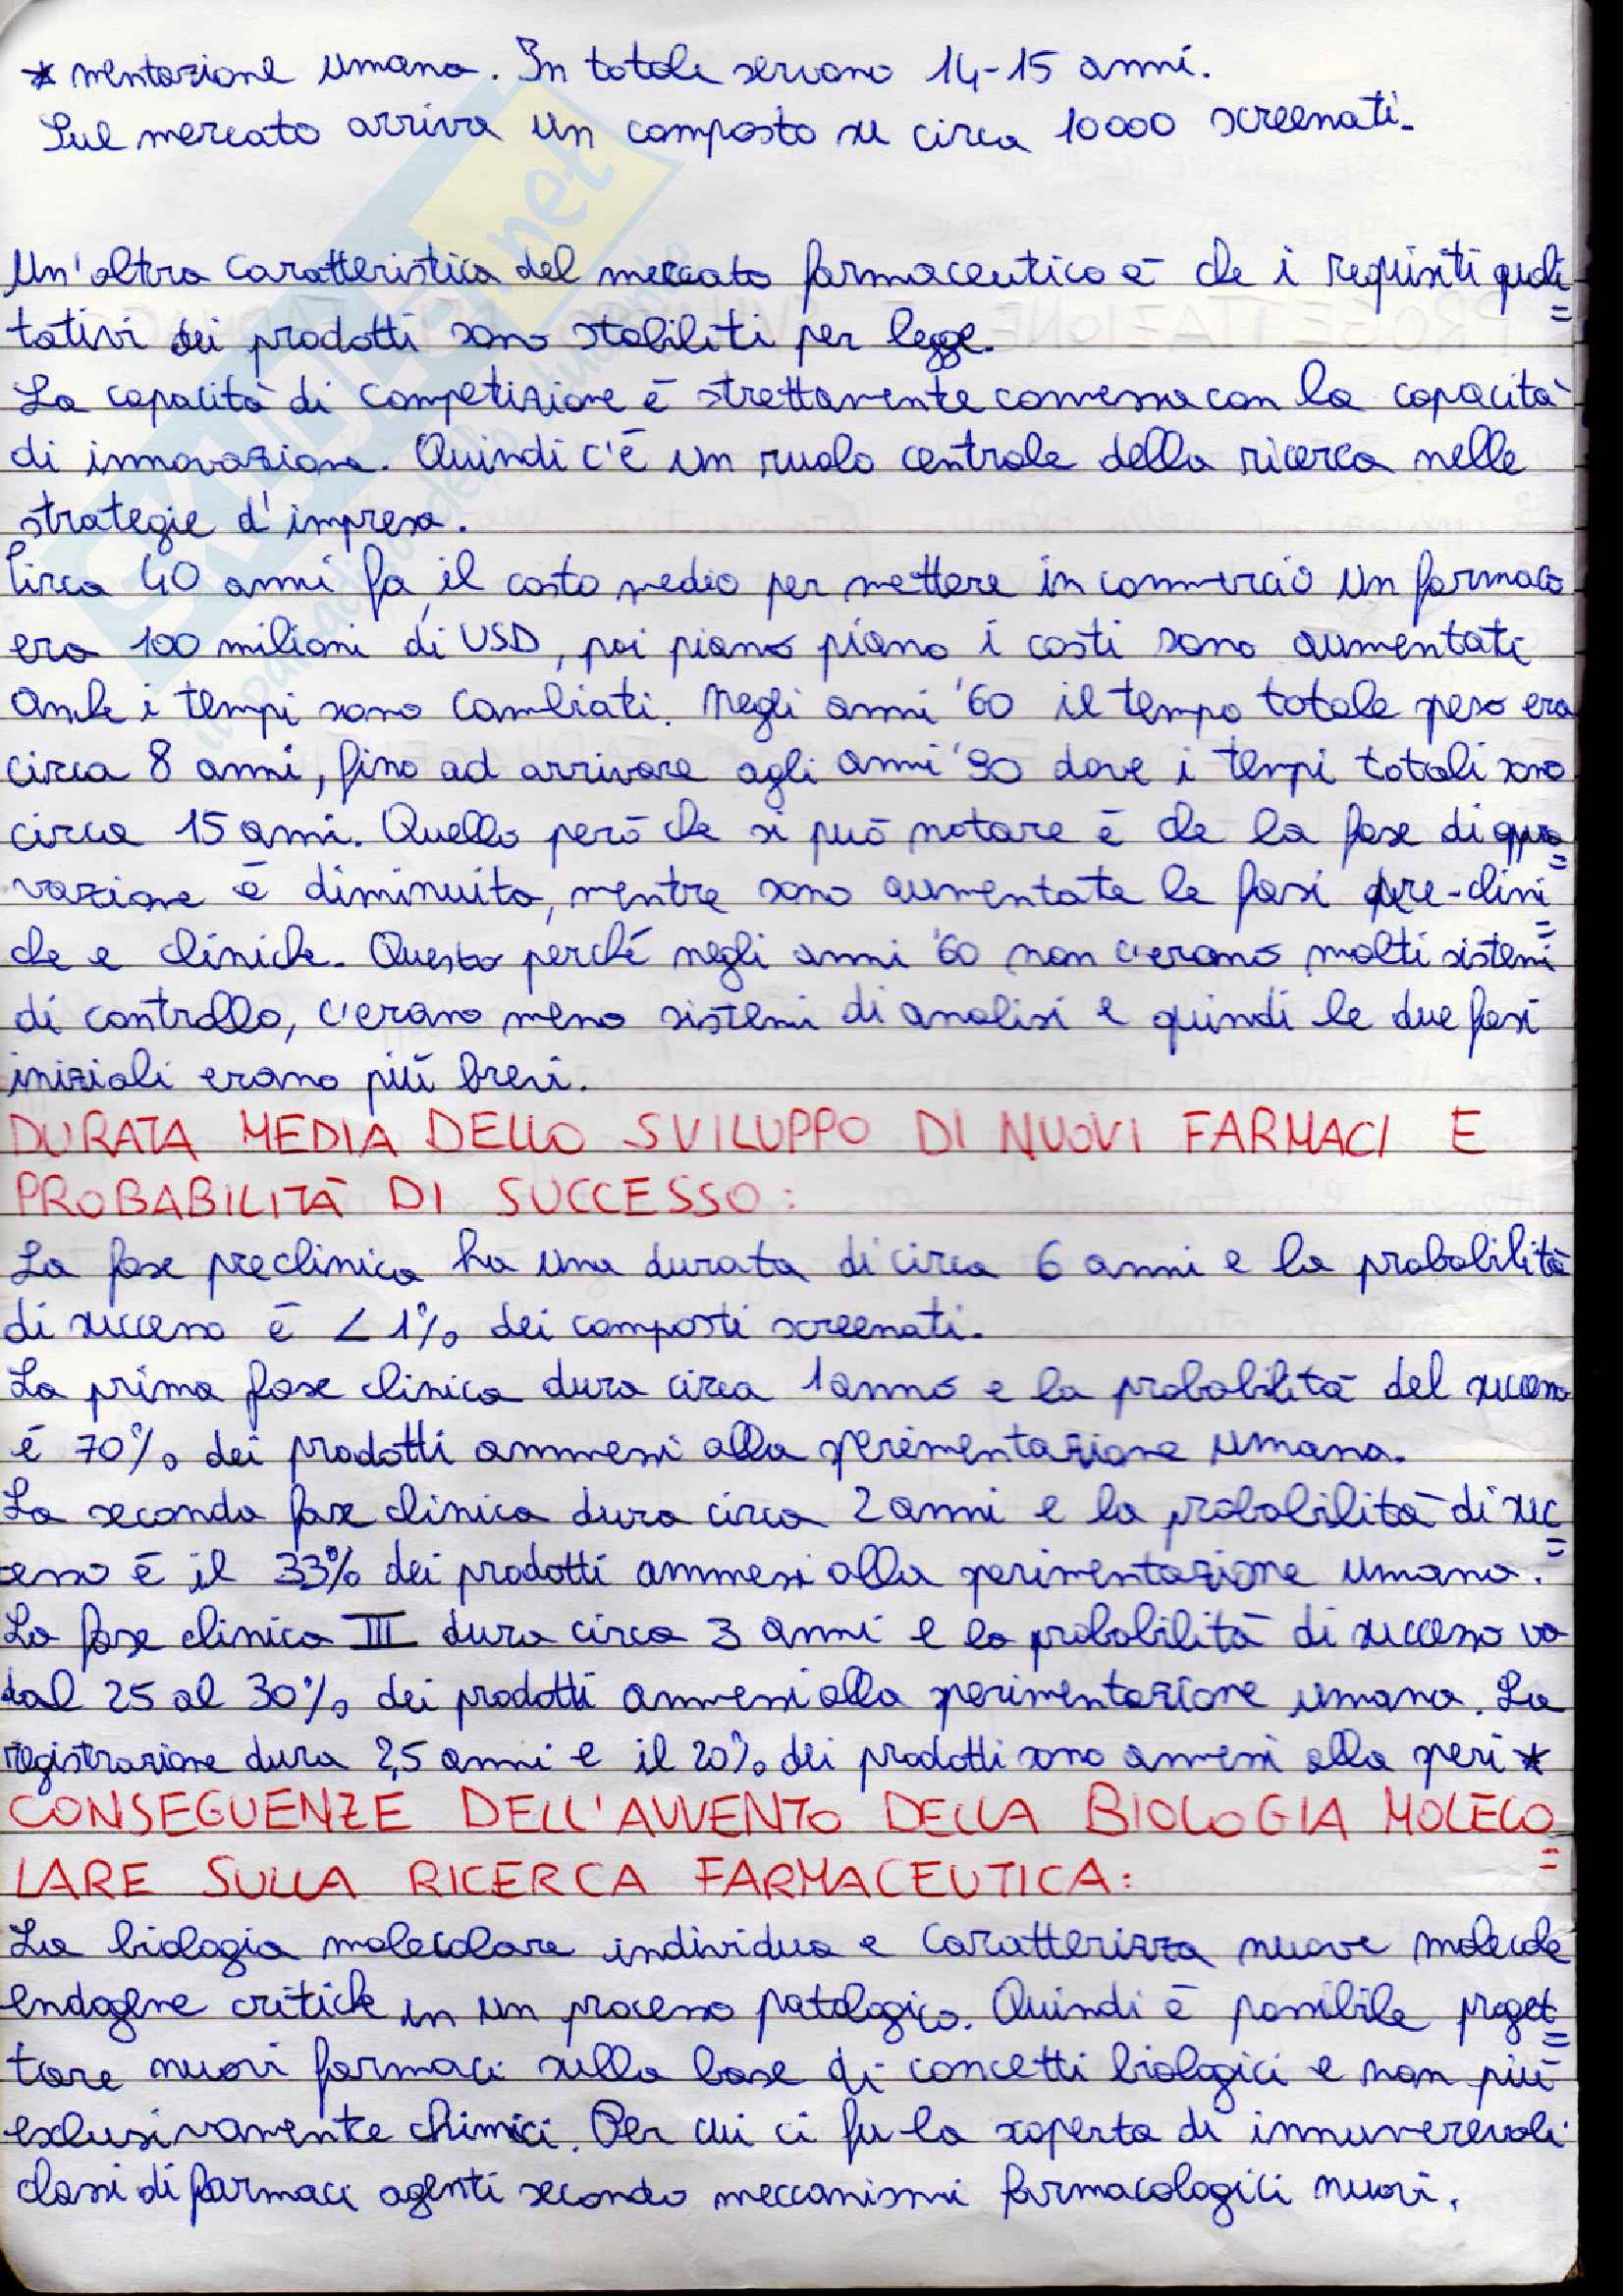 * mentazione umana. In totale servono 14-15 anni.
Sul mercato arriva un composto su circa 10000 screenati.
Un'altra caratteristica del mercato farmaceutico è che i requisiti quali=
tativi dei prodotti sono stabiliti per legge.
La capacità di competizione è strettamente connessa con la capacità
di innovazione. Quindi c'è un ruolo centrale della ricerca nelle
strategie d'impresa.
Circa 40 anni fa, il costo medio per mettere in commercio un farmaco
era 100 milioni di USD, poi piano piano i costi sono aumentati
Anche i tempi sono cambiati. Negli anni '60 il tempo totale perso era
circa 8 anni, fino ad arrivare agli anni '90 dove i tempi totali sono
circa 15 anni. Quello però che si può notare è che la fase di appro=
vazione è diminuita, mentre sono aumentate le fasi pre-clini=
che e cliniche. Questo perché negli anni '60 non c'erano molti sistemi
di controllo, c'erano meno sistemi di analisi e quindi le due fasi
iniziali erano più brevi.
DURATA MEDIA DELLO SVILUPPO DI NUOVI FARMACI E
PROBABILITÀ DI SUCCESSO:
La fase preclinica ha una durata di circa 6 anni e la probabilità
di successo è < 1% dei composti screenati.
La prima fase clinica dura circa 1 anno e la probabilità del successo
è 70% dei prodotti ammessi alla sperimentazione umana.
La seconda fase clinica dura circa 2 anni e la probabilità di suc=
cesso è il 33% dei prodotti ammessi alla sperimentazione umana.
La fase clinica III dura circa 3 anni e la probabilità di successo va
dal 25 al 30% dei prodotti ammessi alla sperimentazione umana. La
registrazione dura 2,5 anni e il 20% dei prodotti sono ammessi alla speri *
CONSEGUENZE DELL'AVVENTO DELLA BIOLOGIA MOLECO=
LARE SULLA RICERCA FARMACEUTICA:
La biologia molecolare individua e caratterizza nuove molecole
endogene critiche in un processo patologico. Quindi è possibile proget=
tare nuovi farmaci sulla base di concetti biologici e non più
esclusivamente chimici. Per cui ci fu la scoperta di innumerevoli
classi di farmaci agenti secondo meccanismi farmacologici nuovi.